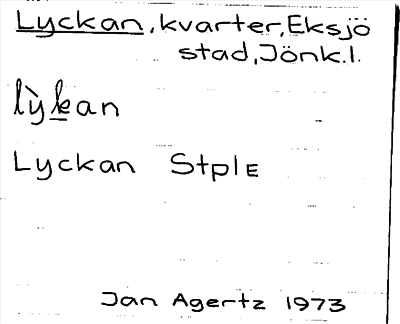 Lyckan, kvarter, Eksjö
stad, Jönk.l.
lỳkan
Lyckan StplE
Jan Agertz 1973